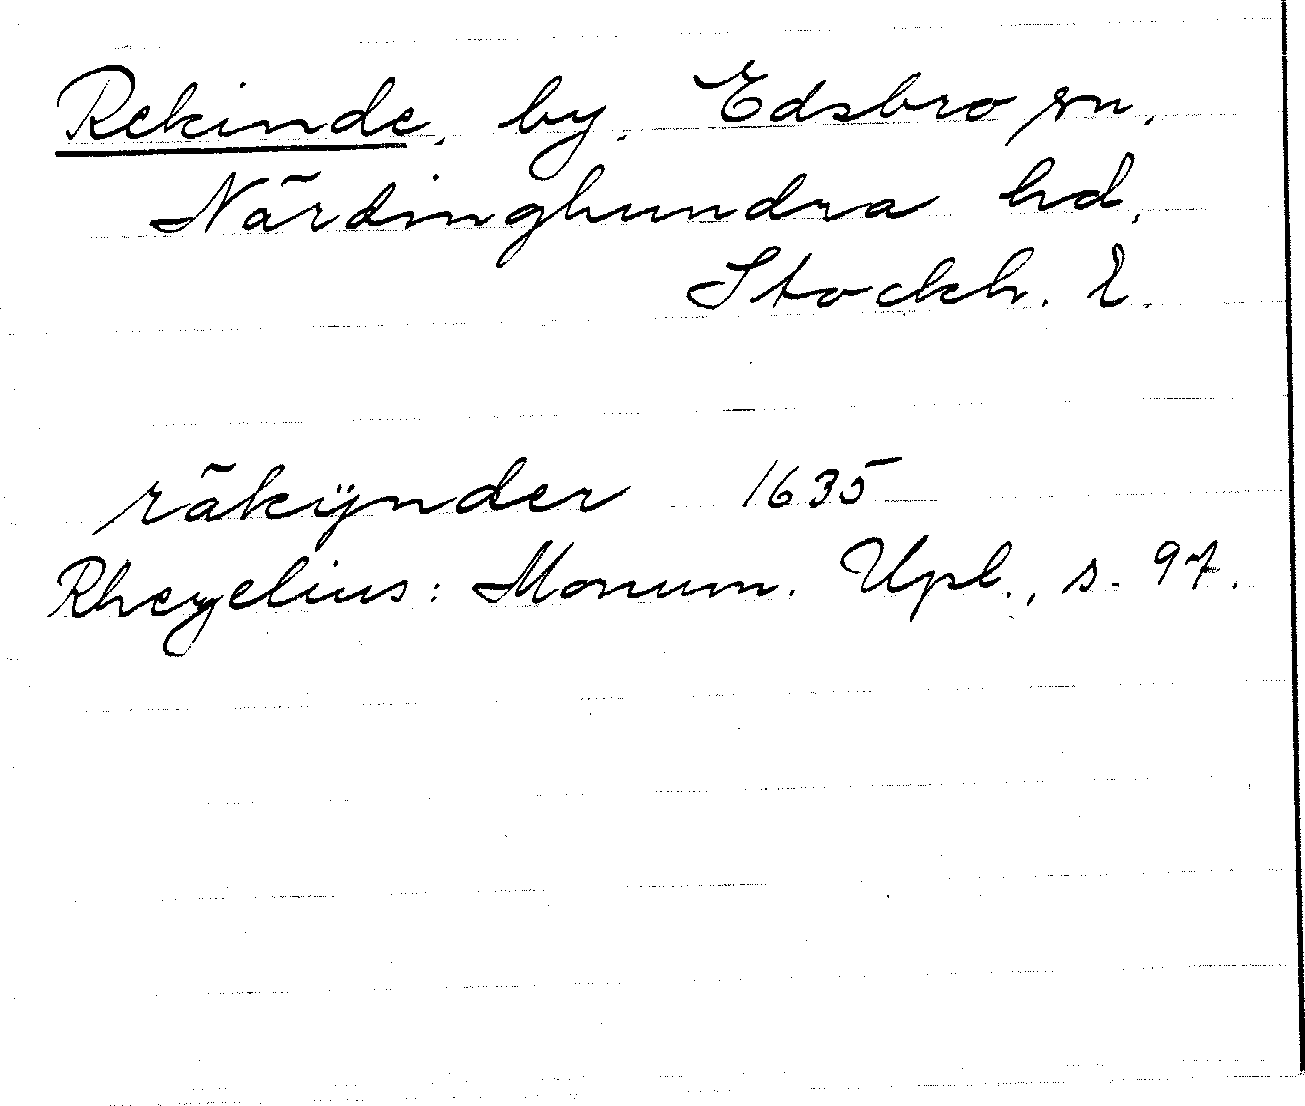 Rekinde, by, Edsbro sn,
Närdinghundra hd,
Stockh. l.
räkÿnder 1635
Rhezelius: Monum. Upl., s. 97.